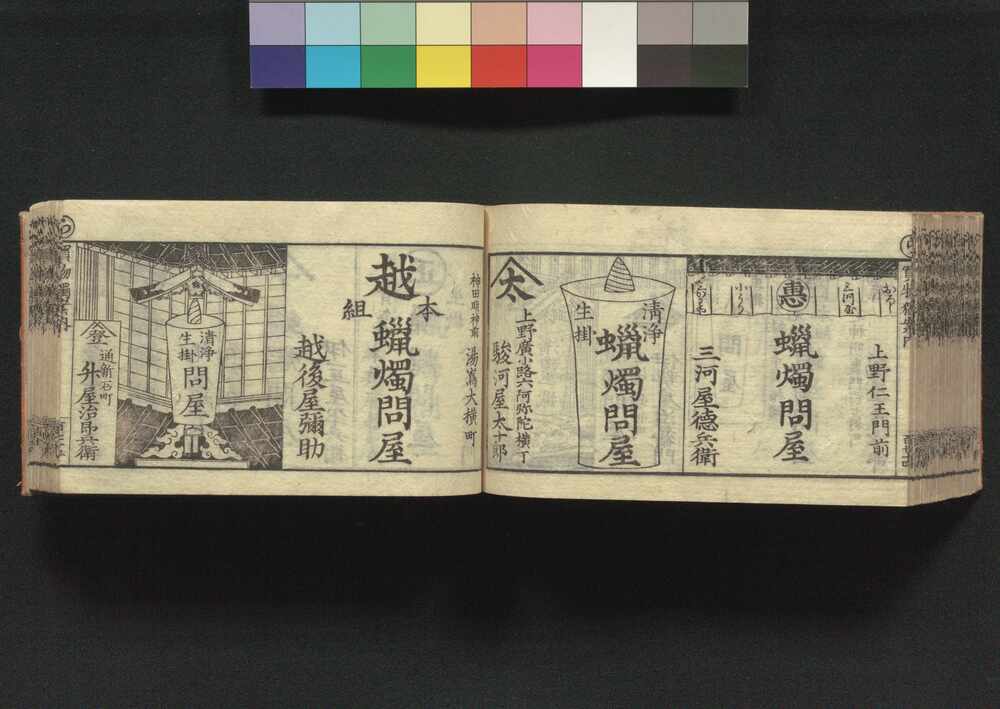 上野仁王門前
おろし
三河屋
惠
小うり
蠟燭問屋
三河屋德兵衛
清浄
生掛
蠟燭問屋
太
上野廣小路六阿弥陀横丁
駿河屋太十郎
神田明神前 湯嶌大横町
越
本
組
蠟燭問屋
越後屋彌助
清浄
生掛
問屋
登
通新石町
升屋治郎兵衛